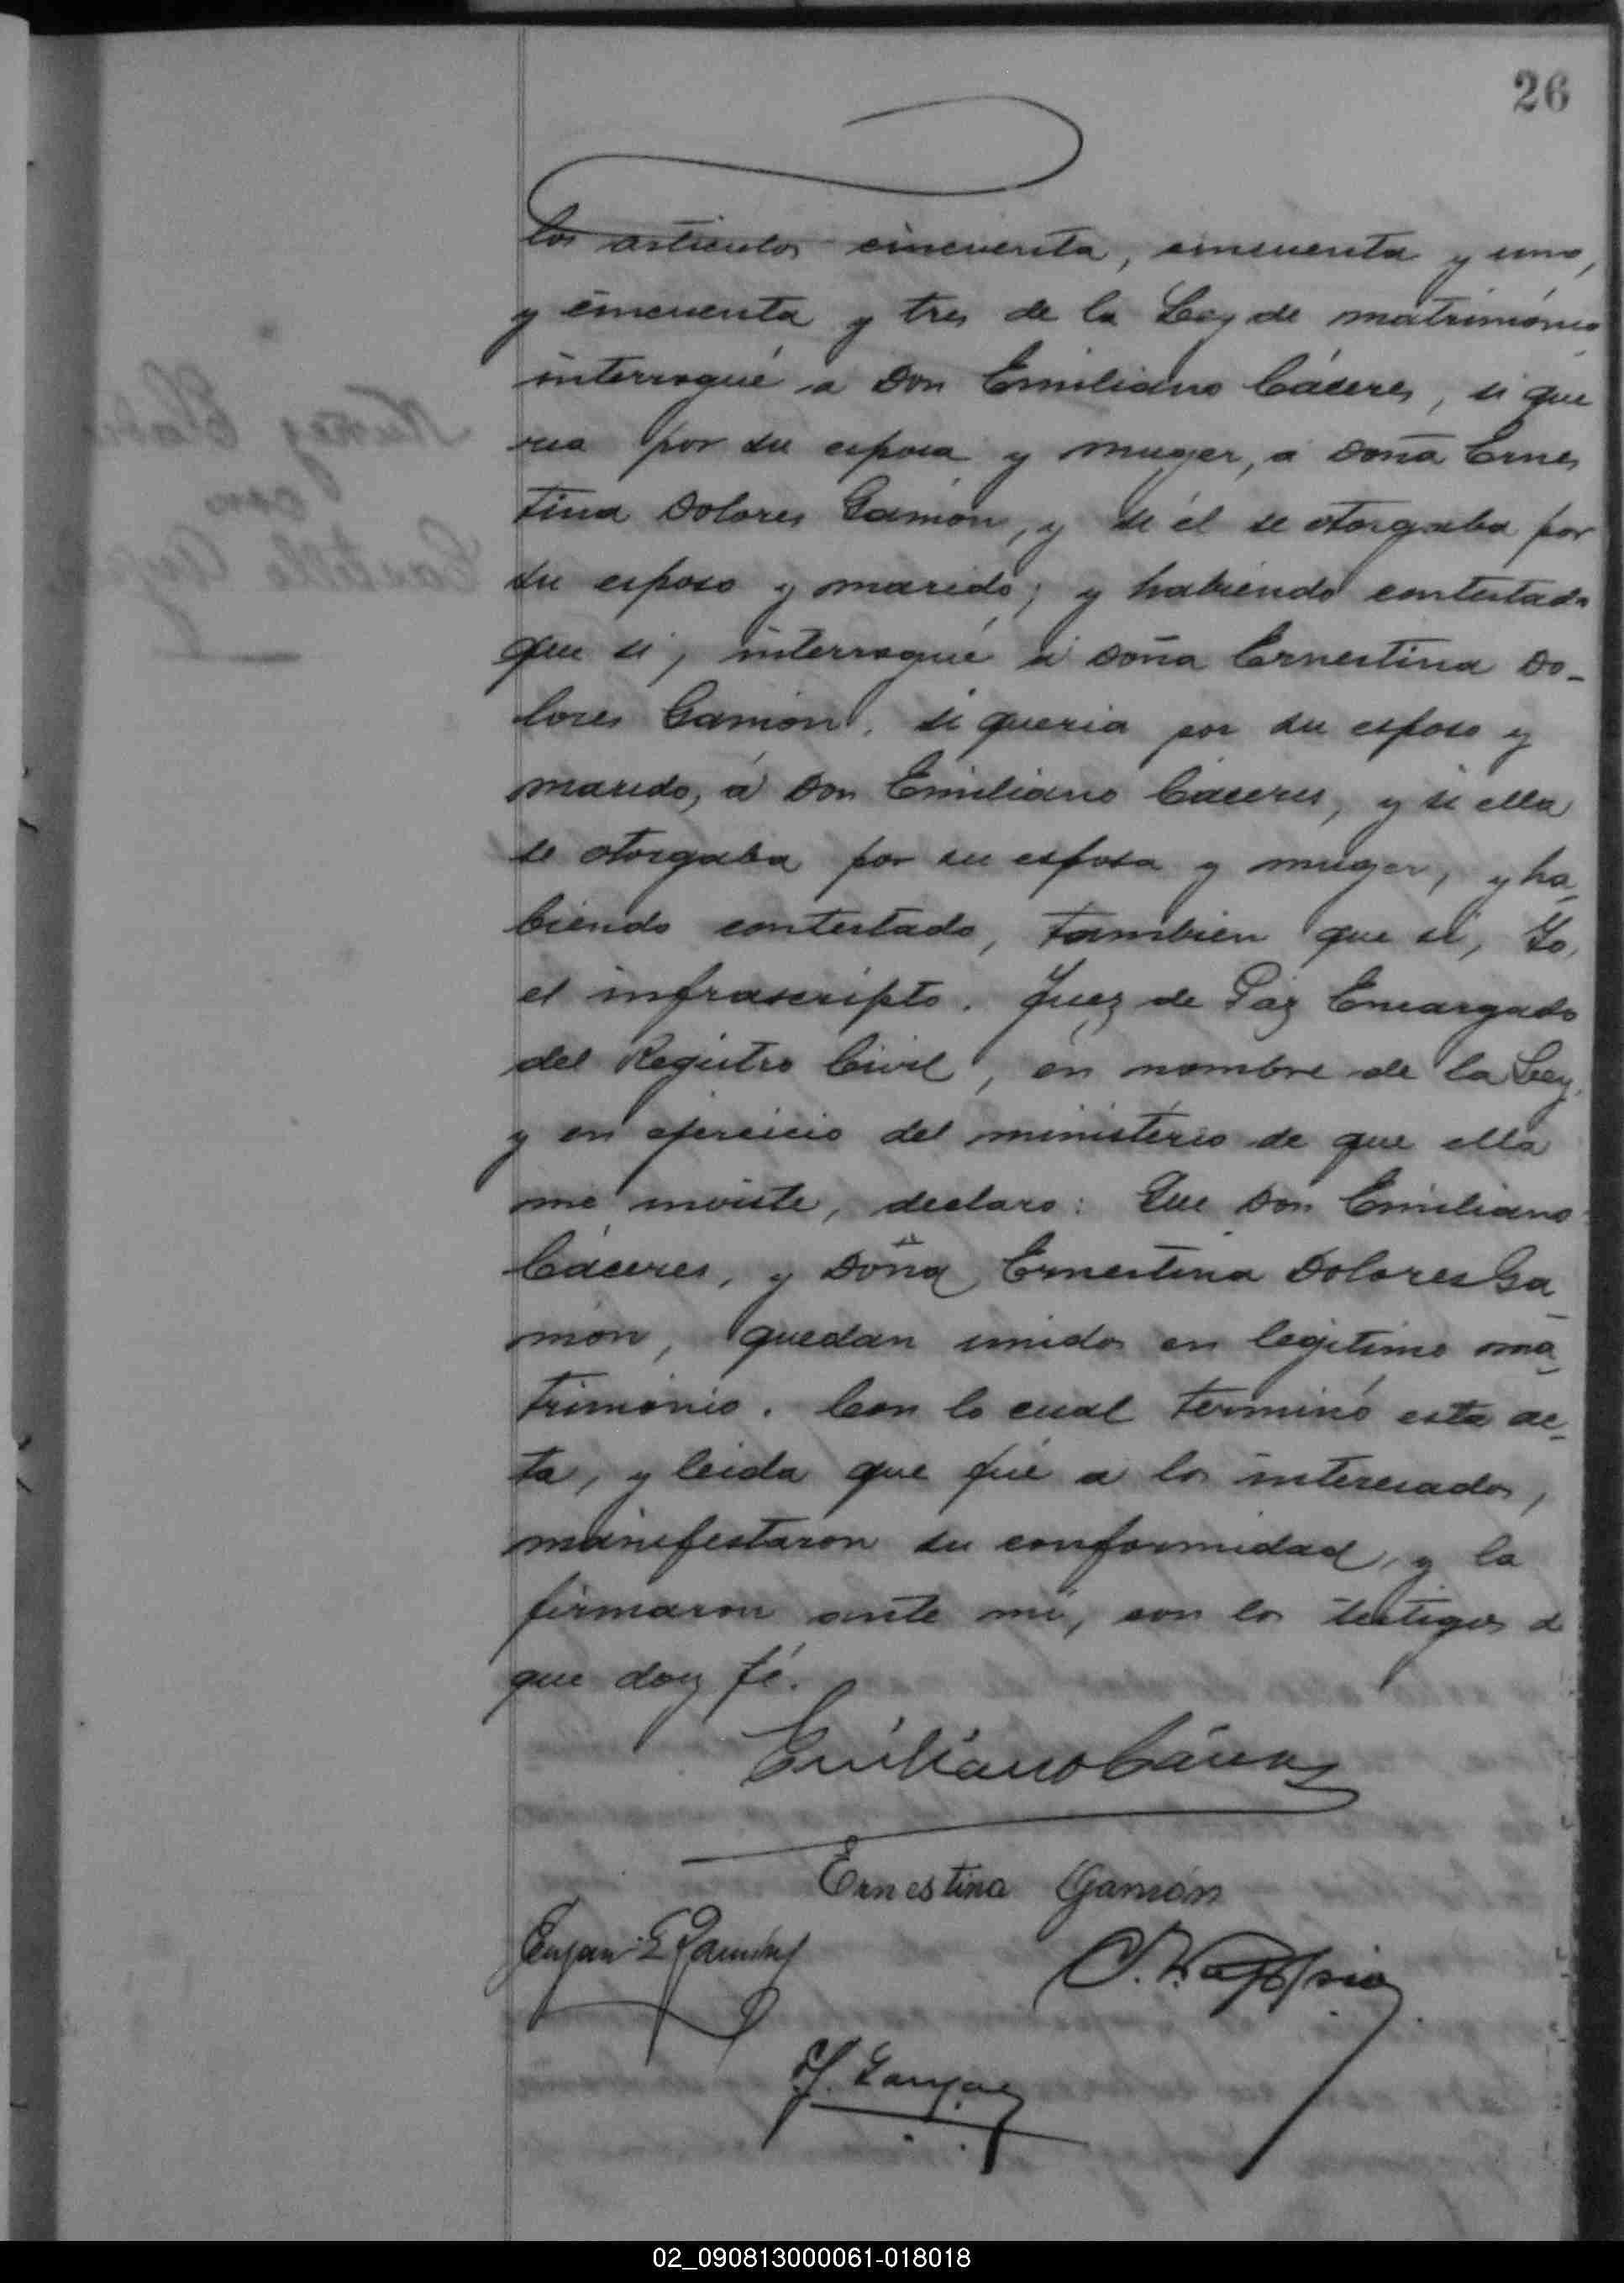 26
los articulos cincuenta, cincuenta y uno,
y cincuenta y tres de la Ley de matrimonio
interrogué a Don Emiliano Cáceres, si que
ria por su esposa y muger, a Doña Ernes
tina Dolores Gamón, y si él se otorgaba por
su esposo y marido; y habiendo contestado
que si, interrogué a Doña Ernestina Do-
lores Gamón, si queria por su esposo y
marido, á Don Emiliano Cáceres, y si ella
se otorgaba por su esposa y muger, y ha-
biendo contestado, tambien que si, Yo,
el infrascripto. Juez de Paz Encargado
del Registro Civil, en nombre de la Ley,
y en ejercicio del ministerio de que ella
me inviste, declaro: Que Don Emiliano
Cáceres, y Doña Ernestina Dolores Ga-
món, quedan unidos en legitimo ma-
trimonio. Con lo cual terminó esta ac-
ta, y leida que fué a los interesados,
manifestaron su conformidad, y la
firmaron ante mi, con los testigos d
que doy fé.
Emiliano Cáceres
Ernestina Gamón
02_090813000061-018018